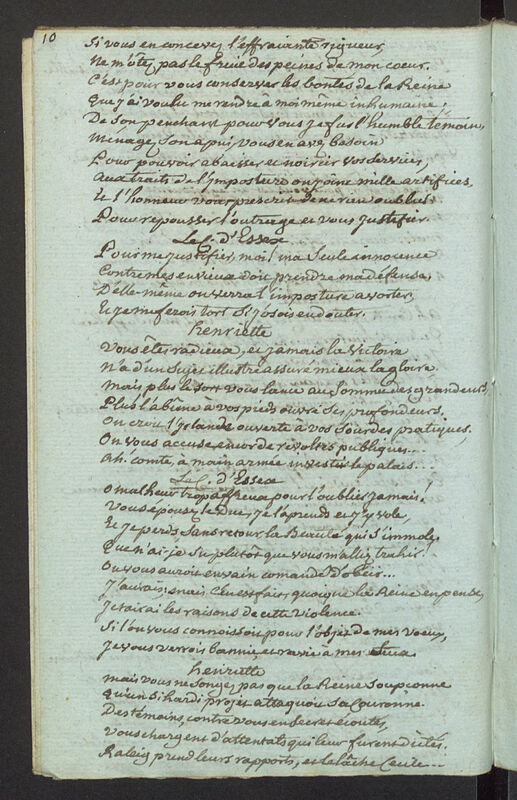 10
Si vous en concevez l'effraiante rigueur,
Ne m'ôtez pas le fruit des peines de mon coeur.
C'est pour vous conserver les bontés de la Reine
Que j'ai voulu me rendre à moi même inhumaine;
De son penchant pour vous je fus l'humble témoin,
Ménagez son apui, vous en avez besoin
Pour pouvoir abaisser et noircir vos services,
Aux traits de l'imposture on joint mille artifices,
Et l'honneur vous prescrit de ne rien oublier
Pour repousser l'outrage et vous justifier.
Le C. d'Essex
Pour me justifier, moi! ma seule innocence
Contre mes envieux doit prendre ma défense,
D'elle-même on verra l'imposture avorter,
Et je me ferois tort si j'osois en douter.
henriette
Vous êtes radieux, et jamais la Victoire
N'a d'un Sujet illustre assuré mieux la gloire
Mais plus le sort vous lance au sommet des grandeurs,
Plus l'abîme à vos pieds ouvre ses profondeurs.
On croit l'Irlande ouverte à vos sourdes pratiques,
On vous accuse encor de révoltes publiques...
Ah! comte, à main armée investir le palais...
Le C. d'Essex
O malheur trop affreux pour l'oublier jamais!
Vous épousez le Duc, je l'aprends et j'y vole,
Et je perds sans retour la Beauté qui s'immole,
Que n'ai-je su plutot que vous m'alliez trahir!
On vous auroit en vain comandé d'obéir...
J'aurais; mais c'en est fait, quoique la Reine en pense,
Je tairai les raisons de cette violence.
Si l'on vous connoissoit pour l'objet de mes voeux,
Je vous verrois bannie, et ravie à mes feux
henriette
Mais vous ne songez pas que la Reine soupçonne
Qu'un si hardi projet attaquoit sa Couronne.
Des témoins, contre vous en secret écoutés,
Vous chargent d'attentats qui leur furent dictés.
Raleig prend leurs rapports, et le lâche Cecile...